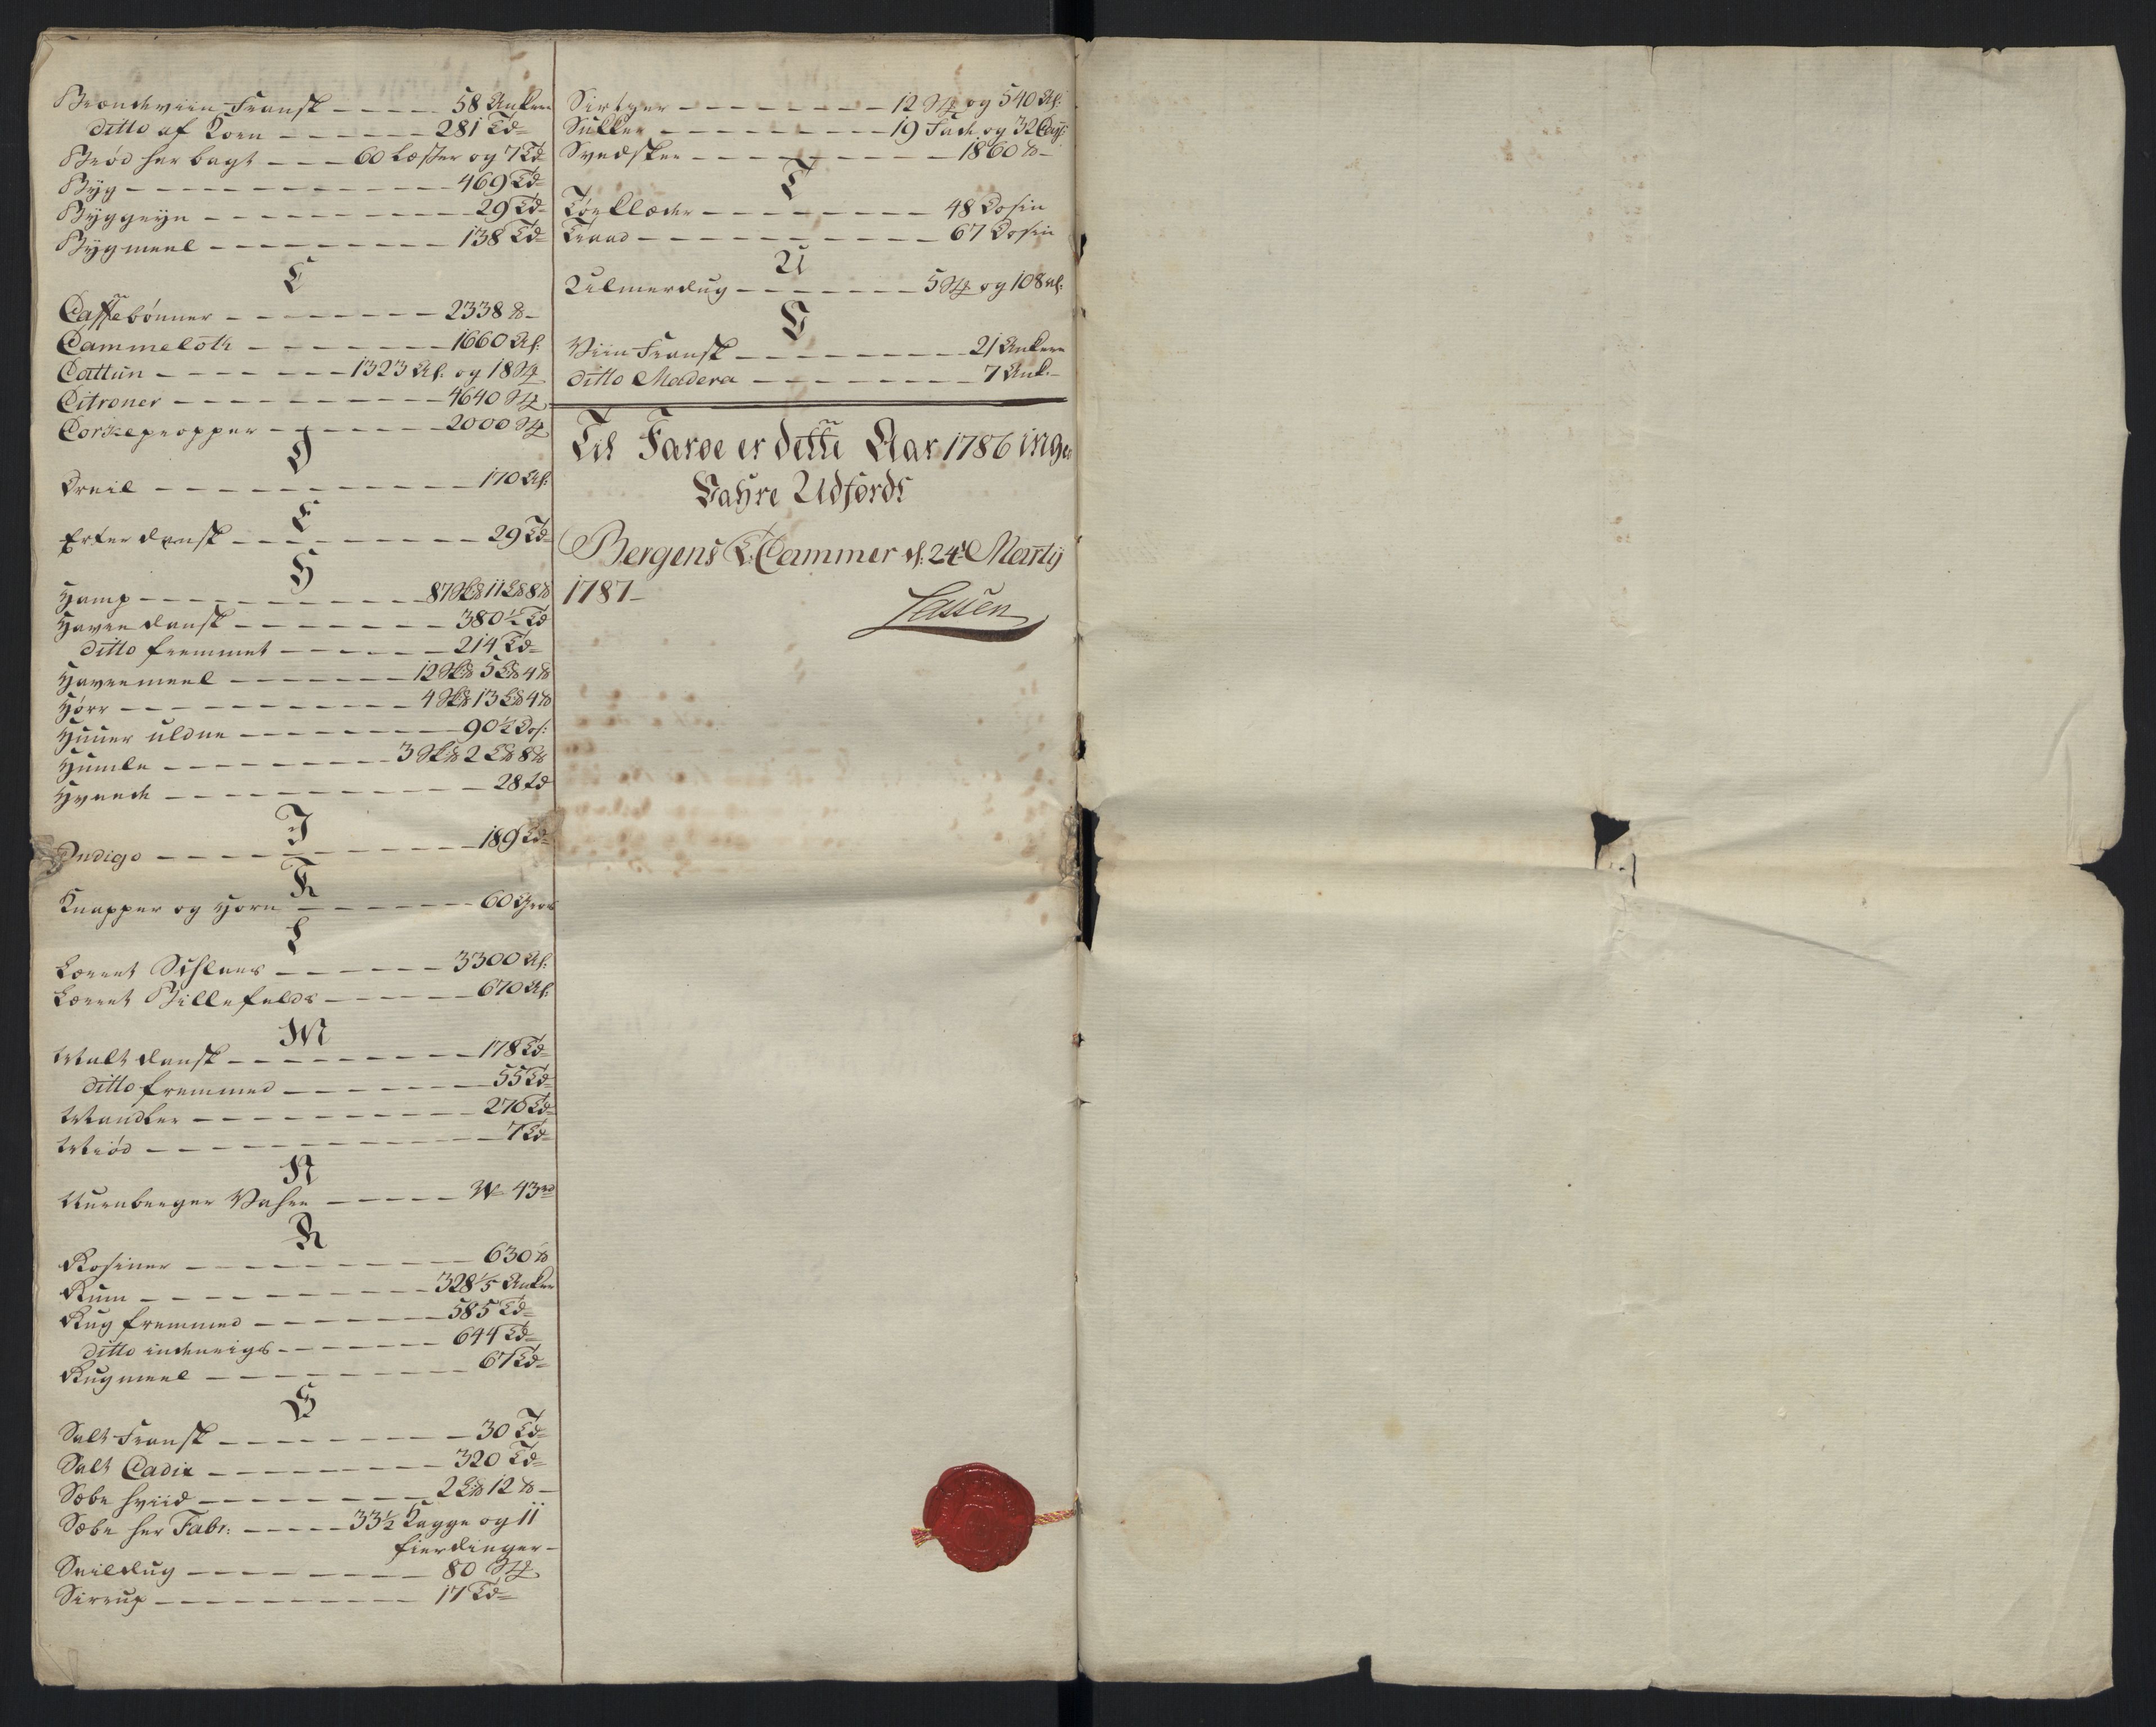 Brændeviin Fransk – – – – 58 Ankere
ditto af Korn – – – – – 281 Td=
Brød her bagt – – – 60 Læster og 7 Td
Byg – – – – – – – – – – 469 Td=
Byggryn – – – – – – – – – 29 Td=
Bygmeel – – – – – – – – 138 Td=
C
Caffebønner – – – – – – – 2338 ℔ –
Cammelott – – – – – – – 1660 Al:
Cattun – – – – – – 1323 Al: og 18 St
Citroner – – – – – – – – – 4640 St
Corkepropper – – – – – – 2000 St
D
Dreil – – – – – – – – – – – 170 Al:
E
Erter dansk – – – – – – – – 29 Td=
H
Hamp – – – – – – – – – 87 Sk℔ 11 L℔ 8 ℔
Havre dansk – – – – – – – 380 ½ Td
ditto fremmet – – – – – – 214 Td=
Havremeel – – – – – – – 12 Sk℔ 5 L℔ 4 ℔
Hørr – – – – – – – – – – 4 Sk℔ 13 L℔ 4 ℔
Huuer uldne – – – – – – – – 90 ½ Dos:
Humle – – – – – – – – – 3 Sk℔ 2 L℔ 8 ℔
Hvede – – – – – – – – – – – 28 Td
I
Indigo – – – – – – – – – – – 189
K
Knapper og Horn – – – – – – 60 Gros
L
Lærret Schlees – – – – – – 3300 Al:
Lærret Billefelds – – – – – 670 Al:
M
Malt dansk – – – – – – – – 178 Td=
ditto fremmed – – – – – – – 55 Td=
Mandler – – – – – – – – – – 276
Miød – – – – – – – – – – – – 7 Td=
N
Nürnberger Vahre – – – – – 43 rd
R
Rosiner – – – – – – – – – – 630 ℔
Rum – – – – – – – – – – 328 ⅕ Anker
Rug fremmed – – – – – – – 585 Td=
ditto indenrigs – – – – – – 644 Td=
Rugmeel – – – – – – – – – 67 Td=
S
Salt Fransk – – – – – – – – 30 Td=
Salt Cadix – – – – – – – – 320 Td=
Sæbe hviid – – – – – – – – 2 L℔ 12 ℔ –
Sæbe her Fabr: – – – – – 33 ½ Kagge og 11
fierdinger –
Seildug – – – – – – – – – 80 St
Sirrup – – – – – – – – – – 17 Td=
Sirtzer – – – – – – – – 12 St og 540 Al:
Sukker – – – – – – – – 19 Fade og 32
Svedsker – – – – – – – – – 1860 ℔ –
T
Tørklæder – – – – – – – – 48 Dosin
Traad – – – – – – – – – – 67 Dosin
U
Ulmerdug – – – – – – – 5 St og 108 Al:
V
Viin Fransk – – – – – – – – 21 Ankere
ditto Madera – – – – – – – – 7 Ank. –
Til Farøe er dette Aar 1786 inge
Vahre Udførdt
Bergens T. Cammer d: 24de Martij
1787 –
Lassen